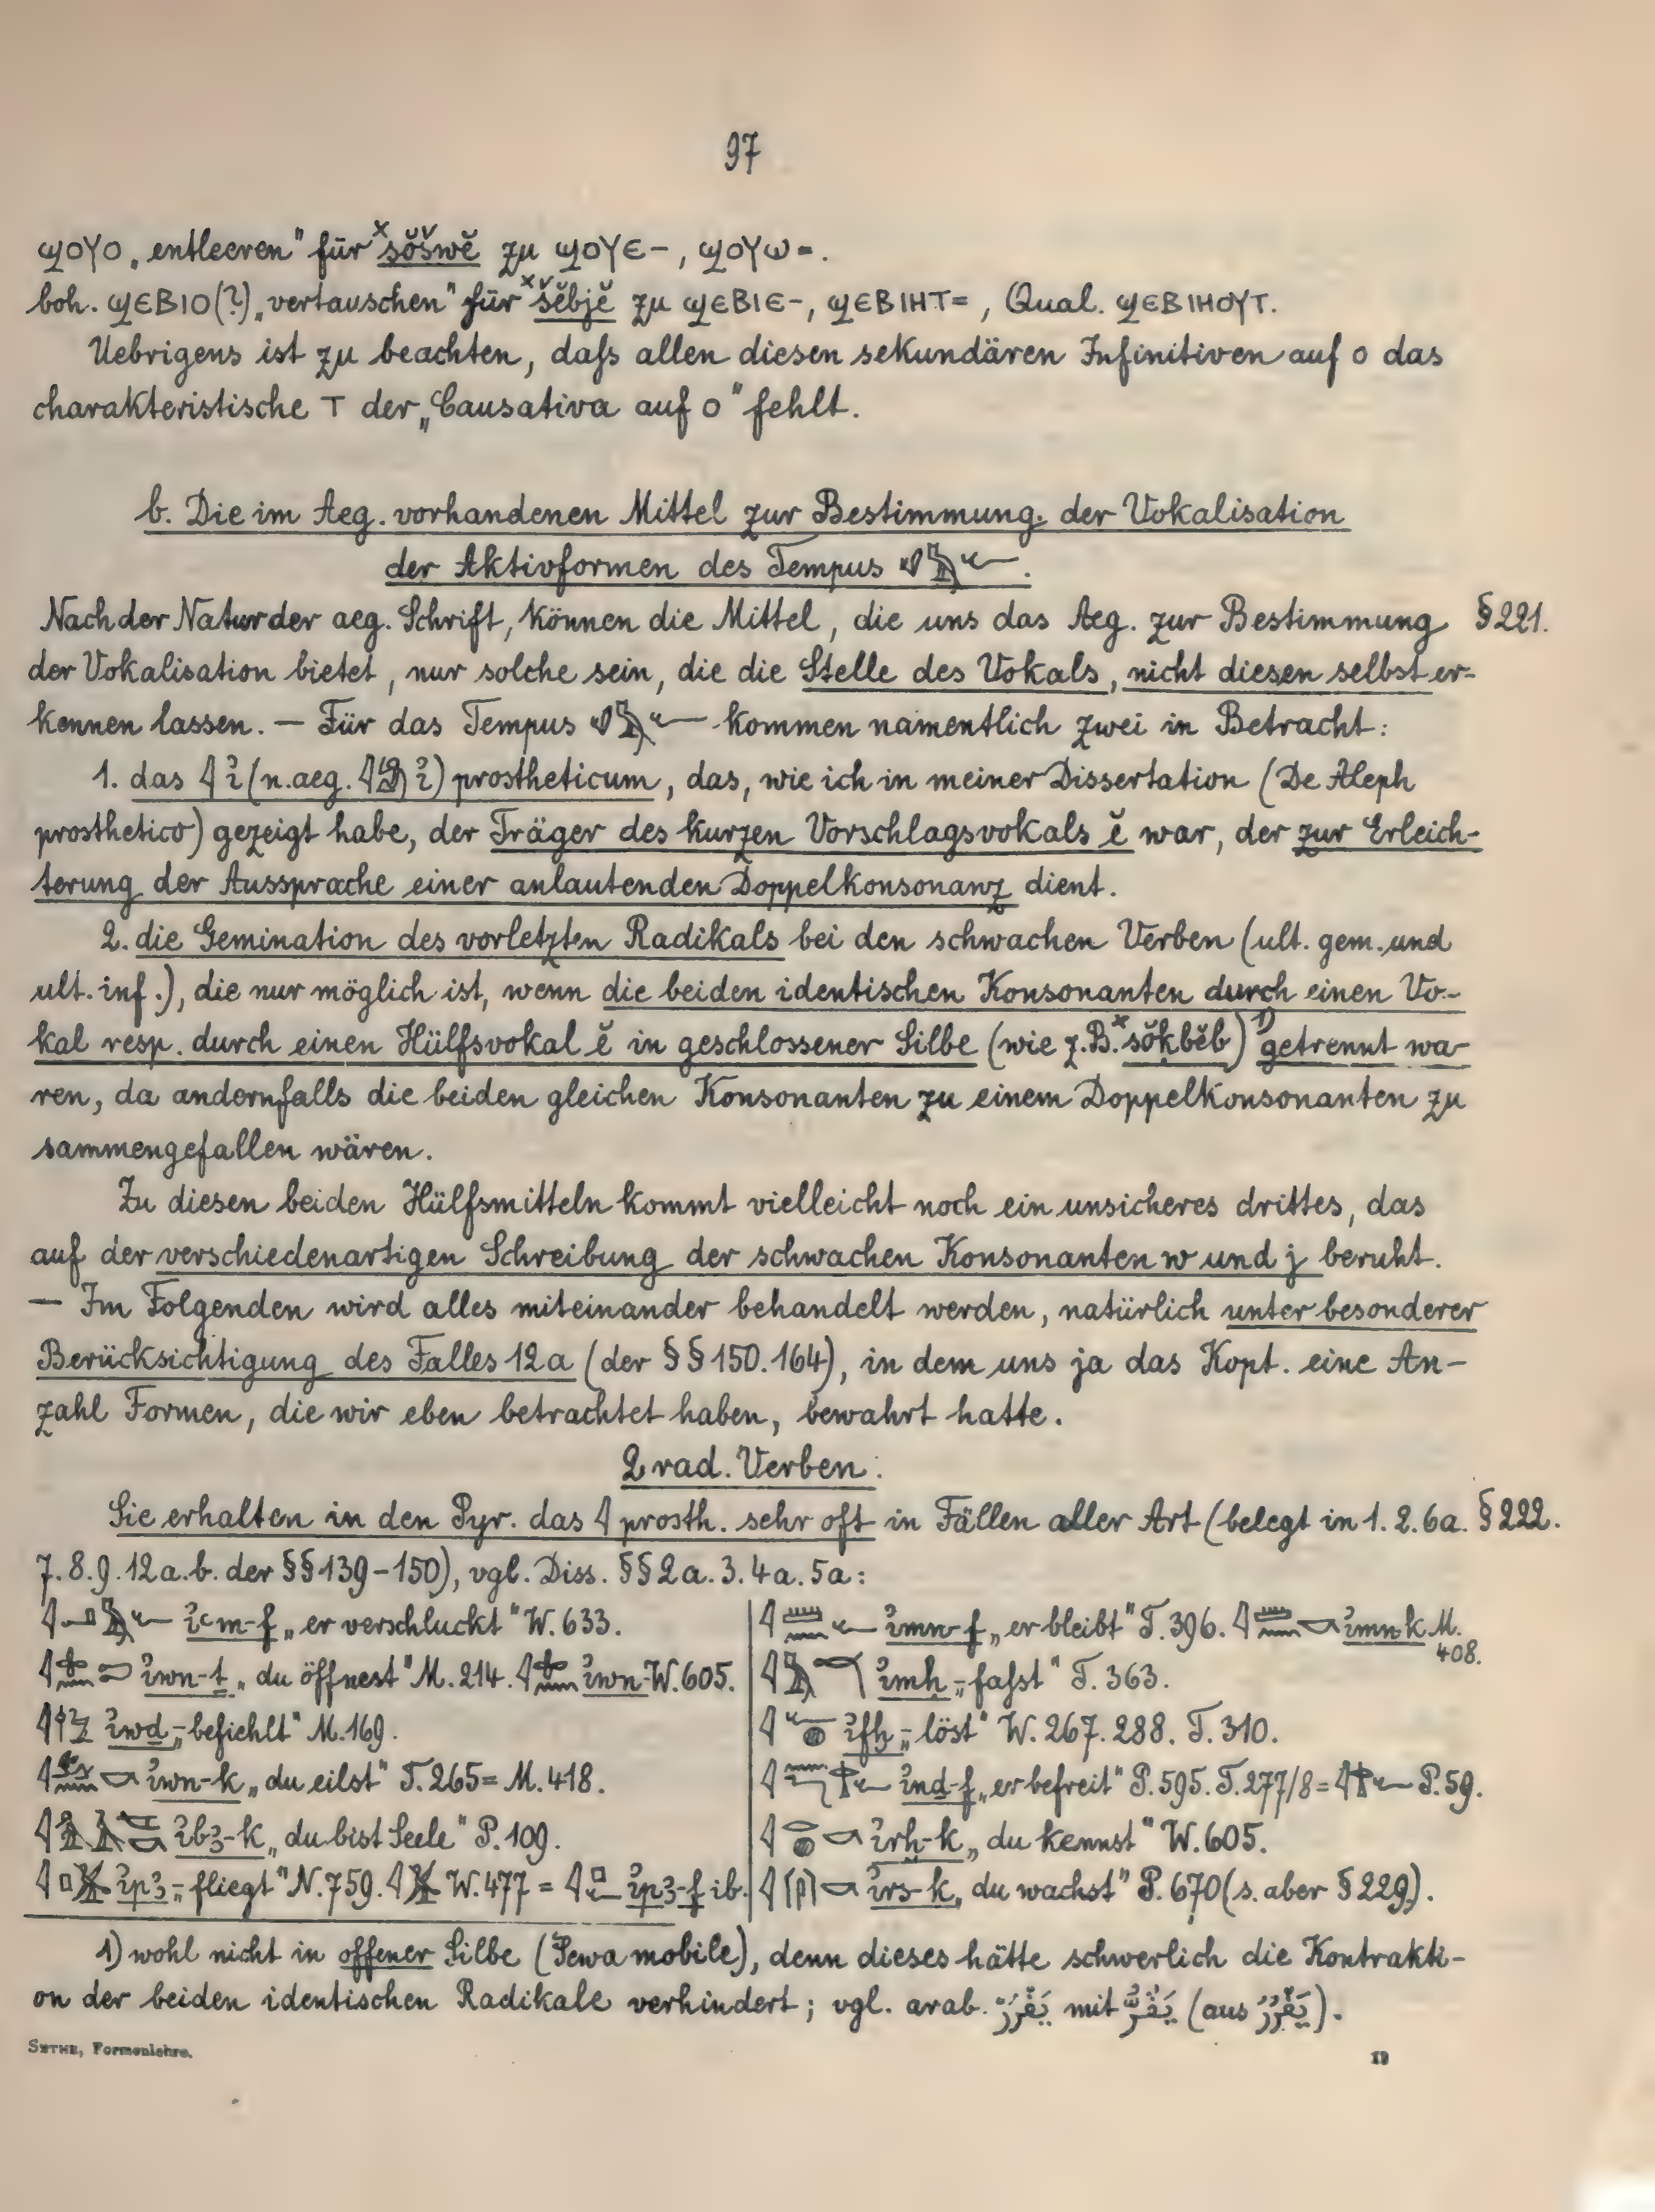 97
ϣΟΥΟ „entleeren" für ×šŏšwĕ zu ϣΟΥЄ-, ϣΟΥω=.
boh. ϣЄΒΙΟ(?) „vertauschen" für ×šĕbjĕ zu ϣЄΒΙЄ-, ϣЄΒΙΗΤ=, Qual. ϣЄΒΙΗΟΥΤ.
Uebrigens ist zu beachten, daſs allen diesen sekundären Infinitiven auf ο das
charakteristische Τ der „Causativa auf ο" fehlt.
b. Die im Aeg. vorhandenen Mittel zur Bestimmung der Vokalisation
der Aktivformen des Tempus 𓄔𓅓𓆑.
Nach der Natur der aeg. Schrift, können die Mittel, die uns das Aeg. zur Bestimmung §221.
der Vokalisation bietet, nur solche sein, die die Stelle des Vokals, nicht diesen selbst er-
kennen lassen. — Für das Tempus 𓄔𓅓𓆑 kommen namentlich zwei in Betracht:
1. das 𓇋 ỉ (n.aeg. 𓇋𓀁 ỉ) prostheticum, das, wie ich in meiner Dissertation (De Aleph
prosthetico) gezeigt habe, der Träger des kurzen Vorschlagsvokals ĕ war, der zur Erleich-
terung der Aussprache einer anlautenden Doppelkonsonanz dient.
2. die Gemination des vorletzten Radikals bei den schwachen Verben (ult. gem. und
ult. inf.), die nur möglich ist, wenn die beiden identischen Konsonanten durch einen Vo-
kal resp. durch einen Hülfsvokal ĕ in geschlossener Silbe (wie z.B. ×sŏḳbĕb)¹⁾ getrennt wa-
ren, da andernfalls die beiden gleichen Konsonanten zu einem Doppelkonsonanten zu
sammengefallen wären.
Zu diesen beiden Hülfsmitteln kommt vielleicht noch ein unsicheres drittes, das
auf der verschiedenartigen Schreibung der schwachen Konsonanten w und j beruht.
— Im Folgenden wird alles miteinander behandelt werden, natürlich unter besonderer
Berücksichtigung des Falles 12a (der §§150.164), in dem uns ja das Kopt. eine An-
zahl Formen, die wir eben betrachtet haben, bewahrt hatte.
2 rad. Verben:
Sie erhalten in den Pyr. das 𓇋 prosth. sehr oft in Fällen aller Art (belegt in 1. 2. 6a. §222.
7. 8. 9. 12a.b. der §§139-150), vgl. Diss. §§2a. 3. 4a. 5a:
ỉꜥm-f „er verschluckt" W. 633.
ỉwn-ṯ „du öffnest" M. 214. ỉwn- W. 605.
ỉwd „- befiehlt" M. 169.
ỉwn-k „du eilst" T. 265 = M. 418.
ỉbꜣ-k „du bist Seele" P. 109.
ỉpꜣ „- fliegt" N. 759. W. 477 = ỉpꜣ-f ib.
ỉmn-f „er bleibt" T. 396. ỉmn-k M.
408.
ỉmḥ „- faſst" T. 363.
ỉfḫ „- löst" W. 267. 288. T. 310.
ỉnḏ-f „er befreit" P. 595. T. 277/8 = P. 59.
ỉrḫ-k „du kennst" W. 605.
ỉrs-k „du wachst" P. 670 (s. aber §229).
1) wohl nicht in offener Silbe (Šewa mobile), denn dieses hätte schwerlich die Kontrakti-
on der beiden identischen Radikale verhindert; vgl. arab. mit (aus ).
SETHE, Formenlehre.